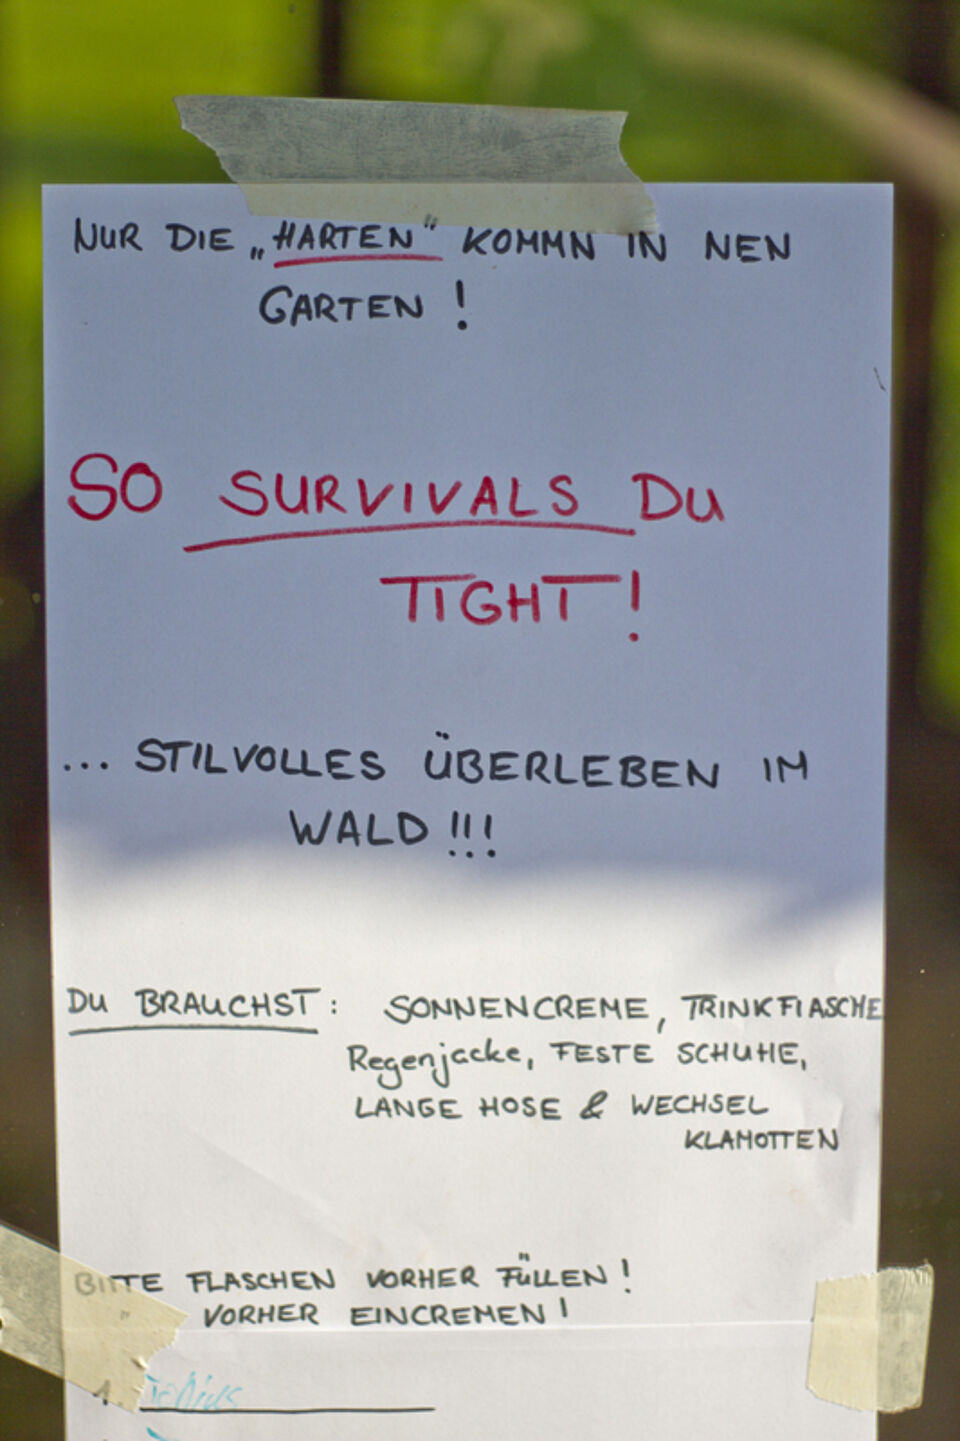 NUR DIE „HARTEN" KOMMN IN NEN
GARTEN !
SO SURVIVALS DU
TIGHT !
... STILVOLLES ÜBERLEBEN IM
WALD !!!
DU BRAUCHST : SONNENCREME, TRINKFLASCHE
Regenjacke, FESTE SCHUHE,
LANGE HOSE & WECHSEL
KLAMOTTEN
BITTE FLASCHEN VORHER FÜLLEN !
" VORHER EINCREMEN !
1. Tobias